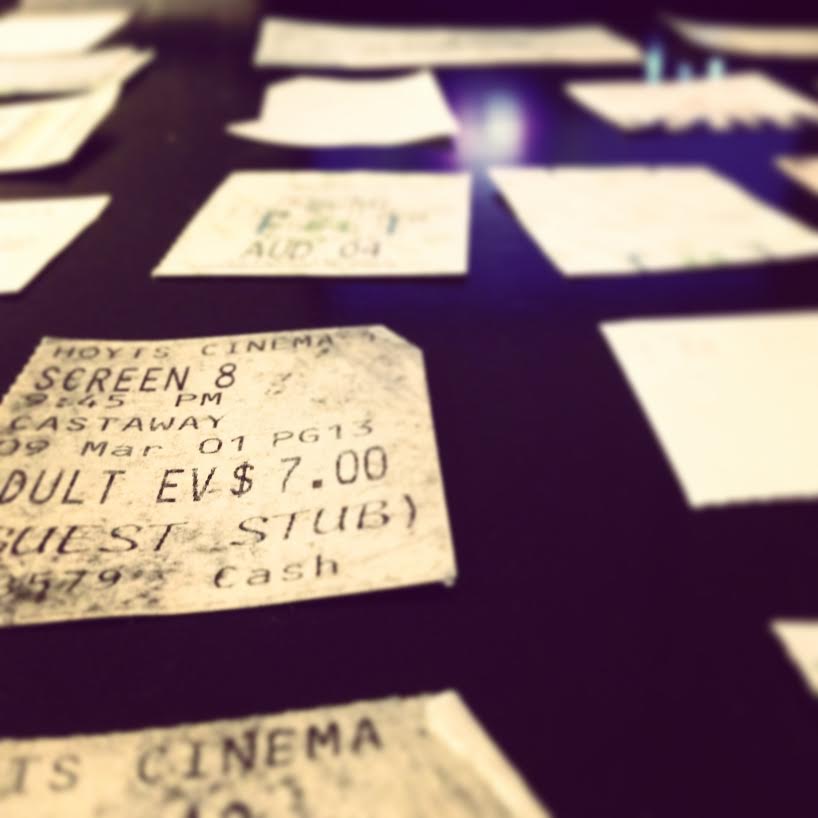 AUD 04
HOYTS CINEMA
SCREEN 8
9:45 PM
CASTAWAY
09 Mar 01 PG13
DULT EV $ 7.00
GUEST STUB)
3579 Cash
TS CINEMA